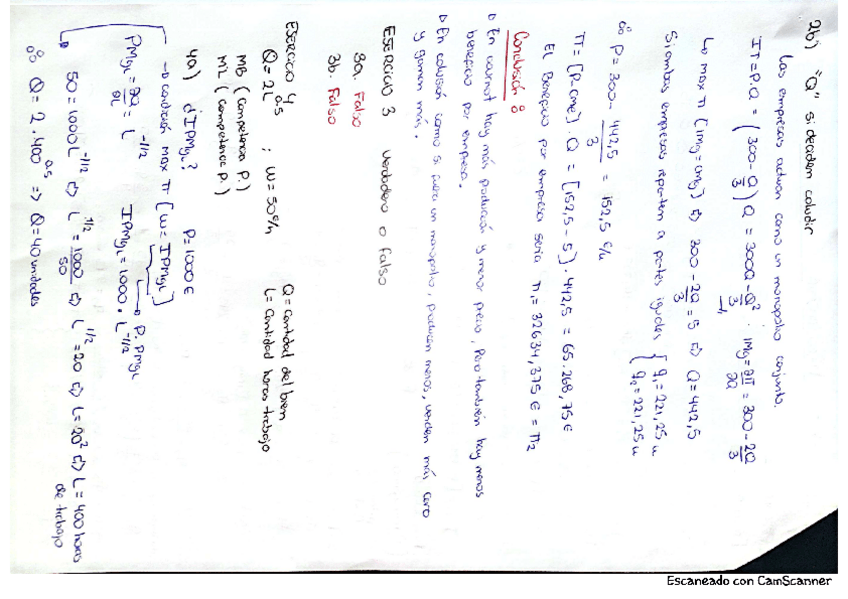 2b) "Q" si deciden coludir
Las empresas actúan como un monopolio conjunto.
IT = P.Q = (300 - Q/3) Q = 300Q - Q²/3 . IMg = ∂IT/∂Q = 300 - 2Q/3
↳ max π (IMg = CMg) ⇔ 300 - 2Q/3 = 5 ⇔ Q = 442,5
Si ambas empresas reparten a partes iguales { q₁ = 221,25 u
q₂ = 221,25 u
∴ P = 300 - 442,5/3 = 152,5 €/u
π = [P - CMe] . Q = [152,5 - 5] . 442,5 = 65.268,75 €
El Beneficio por empresa sería π₁ = 32634,375 € = π₂
Conclusión:
▷ En cournot hay más producción y menor precio, Pero también hay menos
beneficio por empresa.
▷ En colusión como si fuera un monopolio, producen menos, venden más caro
y ganan más.
EJERCICIO 3 Verdadero o falso
3a. Falso
3b. Falso
Ejercicio 4
Q = 2L^0.5 ; w = 50 €/h
Q = Cantidad del bien
L = Cantidad horas trabajo
MB (Competencia P.)
ML (Competencia P.)
4a) ¿IPMgL? P = 1000 €
→ condición max π (w = IPMgL)
→ P. PMgL
PMgL = ∂Q/∂L = L^-1/2 IPMgL = 1000 . L^-1/2
↳ 50 = 1000 L^-1/2 ⇔ L^1/2 = 1000/50 ⇔ L^1/2 = 20 ⇔ L = 20² ⇔ L = 400 horas
de trabajo
∴ Q = 2 . 400^0.5 ⇒ Q = 40 unidades
Escaneado con CamScanner